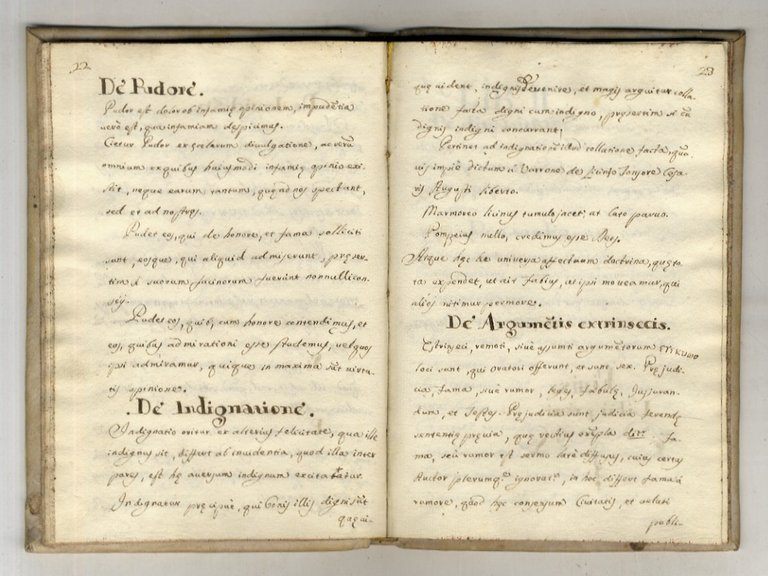 22
De Pudore.
Pudor est dolor ob infamię opinionem, impudẽtia
uerò est, qua infamiam despicimus.
Cietur Pudor ex scelerum diuulgatione, ac verũ
omnium ex quibus huiusmodi infamię opinio exi-
stit, neque earum tantum, quę ad nos spectant,
sed et ad nostros.
Pudet eos, qui de honore, et fama solliciti
sunt, eosque, qui aliquid admiserunt, pręser-
tim si suorum facinorum fuerint nonnulli con-
scij.
Pudet eos, quib; cum honore contendimus, et
eos, quibus admirationi esse studemus, vel quos
ipsi admiramur, quique in maxima sũt uirtu-
tis opinione.
De Indignatione.
Indignatio oritur ex alterius felicitate, qua ille
indignus sit, differt ab inuidentia, quod illa inter
pares, est hę aduersum indignum excitatur.
Indignatur pręcipuè, qui bonis illis digni sũt
quę ui-
23
quę uident, indignis euenire, et magis arguitur colla-
tione facta digni cum indigno, pręsertim si cũ
dignis indigni concurrant;
Pertinet ad indignationẽ illud collatione facta, quo-
uis impiè dictum à Varrone de Licinio Tonsore Cęsa-
ris Augusti liberto.
Marmoreo licinus tumulo jacet; at Cato paruo.
Pompeius nullo, credimus esse Deos.
Atque hęc de universa affectuum doctrina, quę to-
ta expendet, ut ait Fabius, ut ipsi moueamur, qui
alios nitimur permovere.
De Argumẽtis extrinsecis.
Extrinseci, remoti, siuè assumti argumẽtorum
loci sunt, qui oratori offerunt, et sunt sex. Pręjudi-
cia, fama, siuè rumor, leges, Tabulę, Jusjuran-
dum, et Testes. Pręjudicia sunt judicia ferendę
sententię pręuia, quę vedius exẽpla
ma, seu rumor est sermo latè diffusus, cuius certus
Auctor plerumq; ignorat, in hoc differt fama à
rumore, quod hęc consensum Ciuitatis, et ueluti
publi-